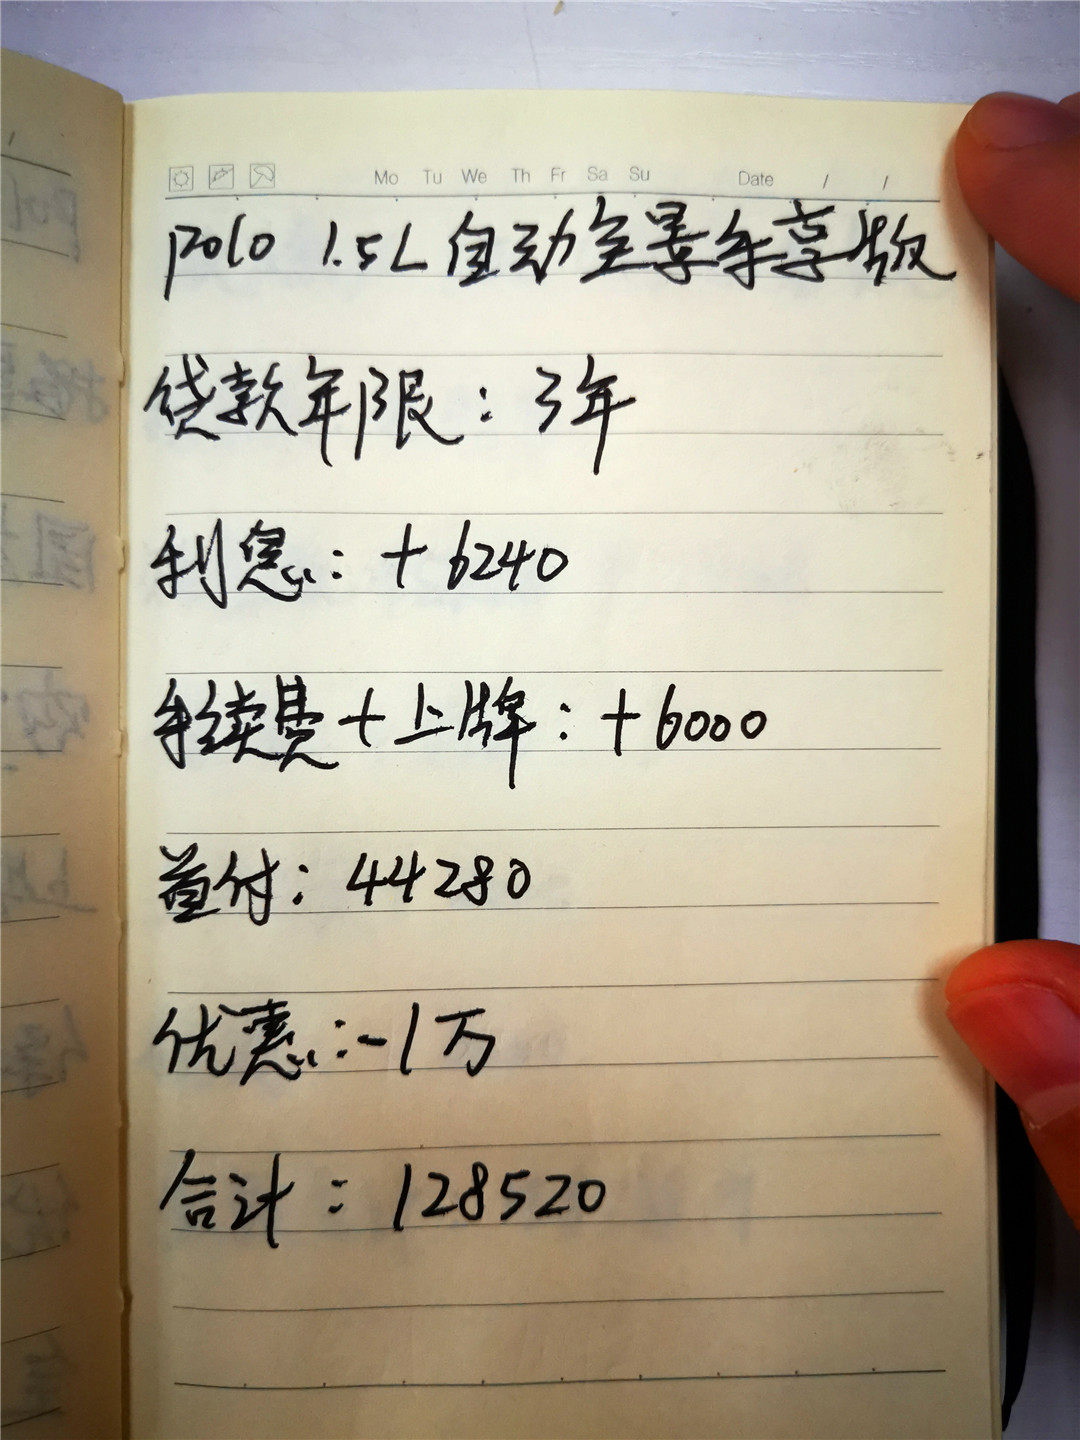 Mo Tu We Th Fr Sa Su Date / /
polo 1.5L 自动全景乐享版
贷款年限：3年
利息：+6240
手续费+上牌：+6000
首付：44280
优惠：-1万
合计：128520